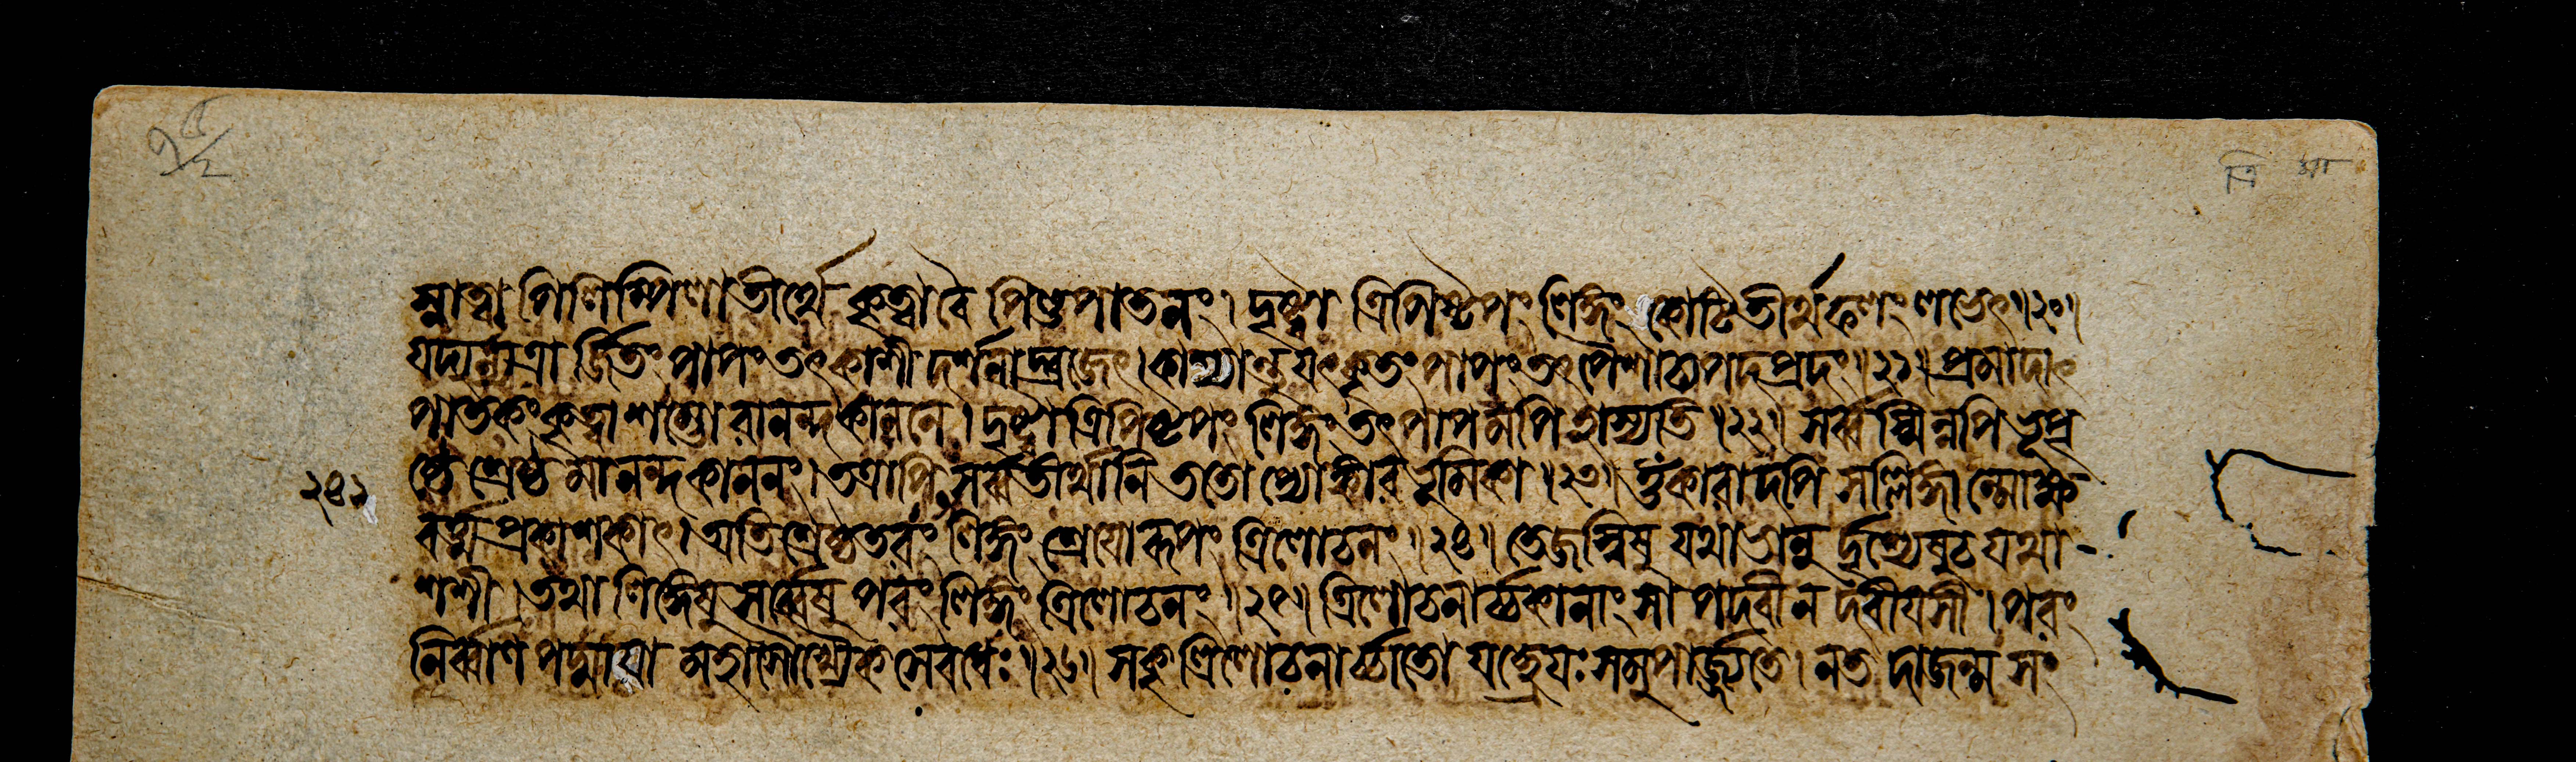 স্নাত্বা পিলিপ্পিলাতীর্থে কৃত্বা বৈ পিণ্ডপাতনং। দৃষ্ট্বা ত্রিপিষ্টপং লিঙ্গং কোটিতীর্থফলং লভেৎ॥২০॥
যদ্যন্যত্রার্জিতং পাপং তৎকাশীদর্শনাদ্ব্রজেৎ। কাশ্যান্তু যৎকৃতং পাপং তৎপৈশাচ্যপদপ্রদং॥২১॥ প্রমাদাৎ
পাতকং কৃত্বা শম্ভোরানন্দকাননে। দৃষ্ট্বা ত্রিপিষ্টপং লিঙ্গং তৎপাপমপি হাস্যতি॥২২॥ সর্ব্বস্মিন্নপি ভূপৃ
ষ্ঠে শ্রেষ্ঠমানন্দকাননং। তত্রাপি সর্ব্বতীর্থানি ততোপ্যোঙ্কারভূমিকা॥২৩॥ ওঁকারাদপি সল্লিঙ্গান্মোক্ষ
২৪১
বর্ত্মপ্রকাশকাৎ। অতিশ্রেষ্ঠতরং লিঙ্গং শ্রেয়োরূপং ত্রিলোচনং॥২৪॥ তেজস্বিষু যথা ভানুর্দৃশ্যেষু চ যথা
শশী। তথা লিঙ্গেষু সর্ব্বেষু পরং লিঙ্গং ত্রিলোচনং॥২৫॥ ত্রিলোচনার্চ্চকানাং সা পদবী ন দবীয়সী। পরং
নির্ব্বাণপদ্মায়া মহাসৌখ্যৈকসেবধেঃ॥২৬॥ সকৃত্ত্রিলোচনার্চ্চাতো যচ্ছ্রেয়ঃ সমুপার্জ্জ্যতে। ন তদাজন্ম সং